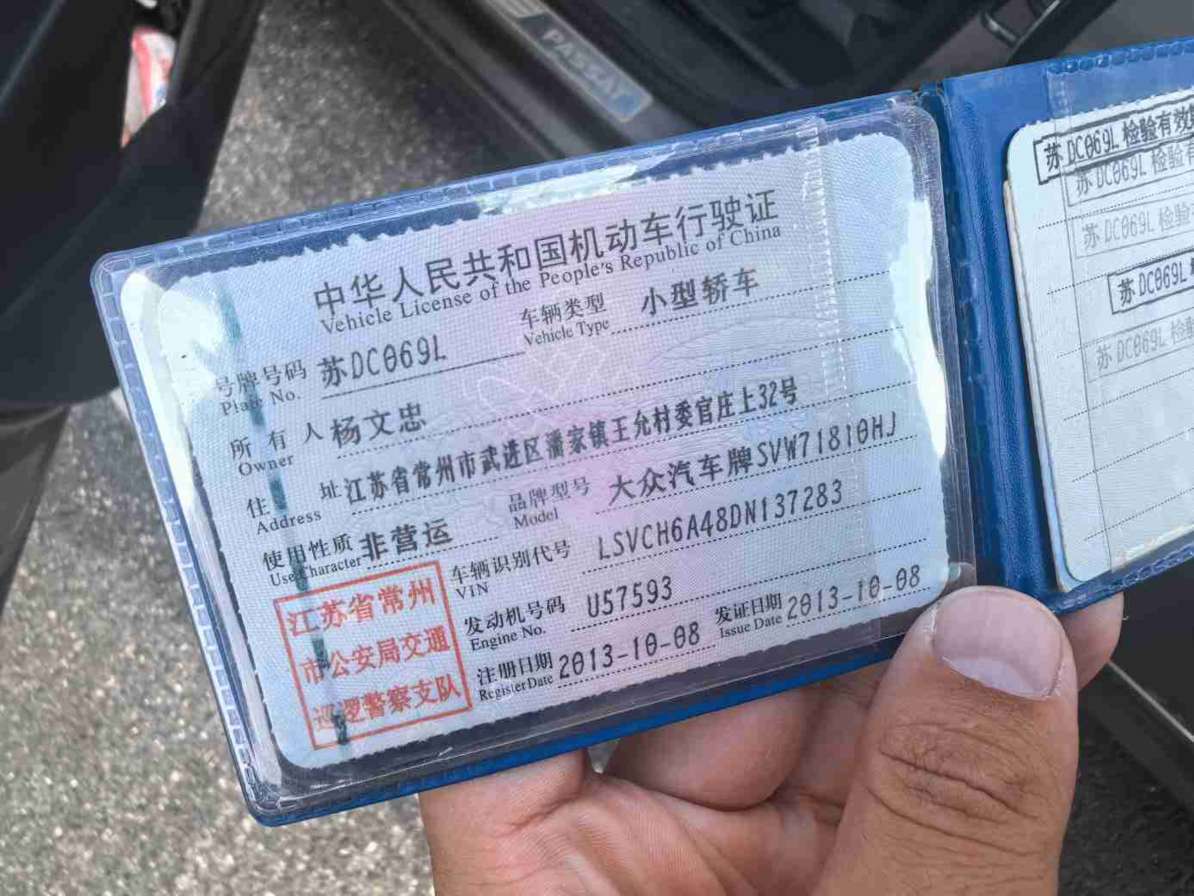 PASSAT
中华人民共和国机动车行驶证
Vehicle License of the People's Republic of China
号牌号码 苏DC069L 车辆类型 小型轿车
Plate No. Vehicle Type
所有人 杨文忠
Owner
住址 江苏省常州市武进区潘家镇王允村委官庄上32号
Address
使用性质 非营运 品牌型号 大众汽车牌SVW71810HJ
Use Character Model
车辆识别代号 LSVCH6A48DN137283
VIN
发动机号码 U57593
Engine No.
注册日期 2013-10-08 发证日期 2013-10-08
Register Date Issue Date
江苏省常州
市公安局交通
巡逻警察支队
苏DC069L 检验有效
苏DC069L 检验有
苏DC069L 检验
苏DC069L
苏DC069L 检验